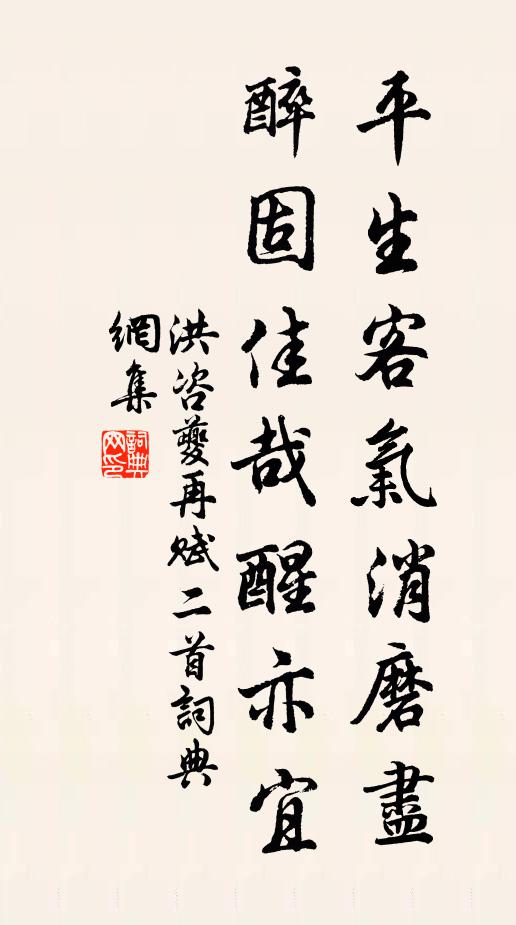 平生客氣消磨盡
醉固佳哉醒亦宜
洪咨夔再賦二首詞典
網集
詞典
网印